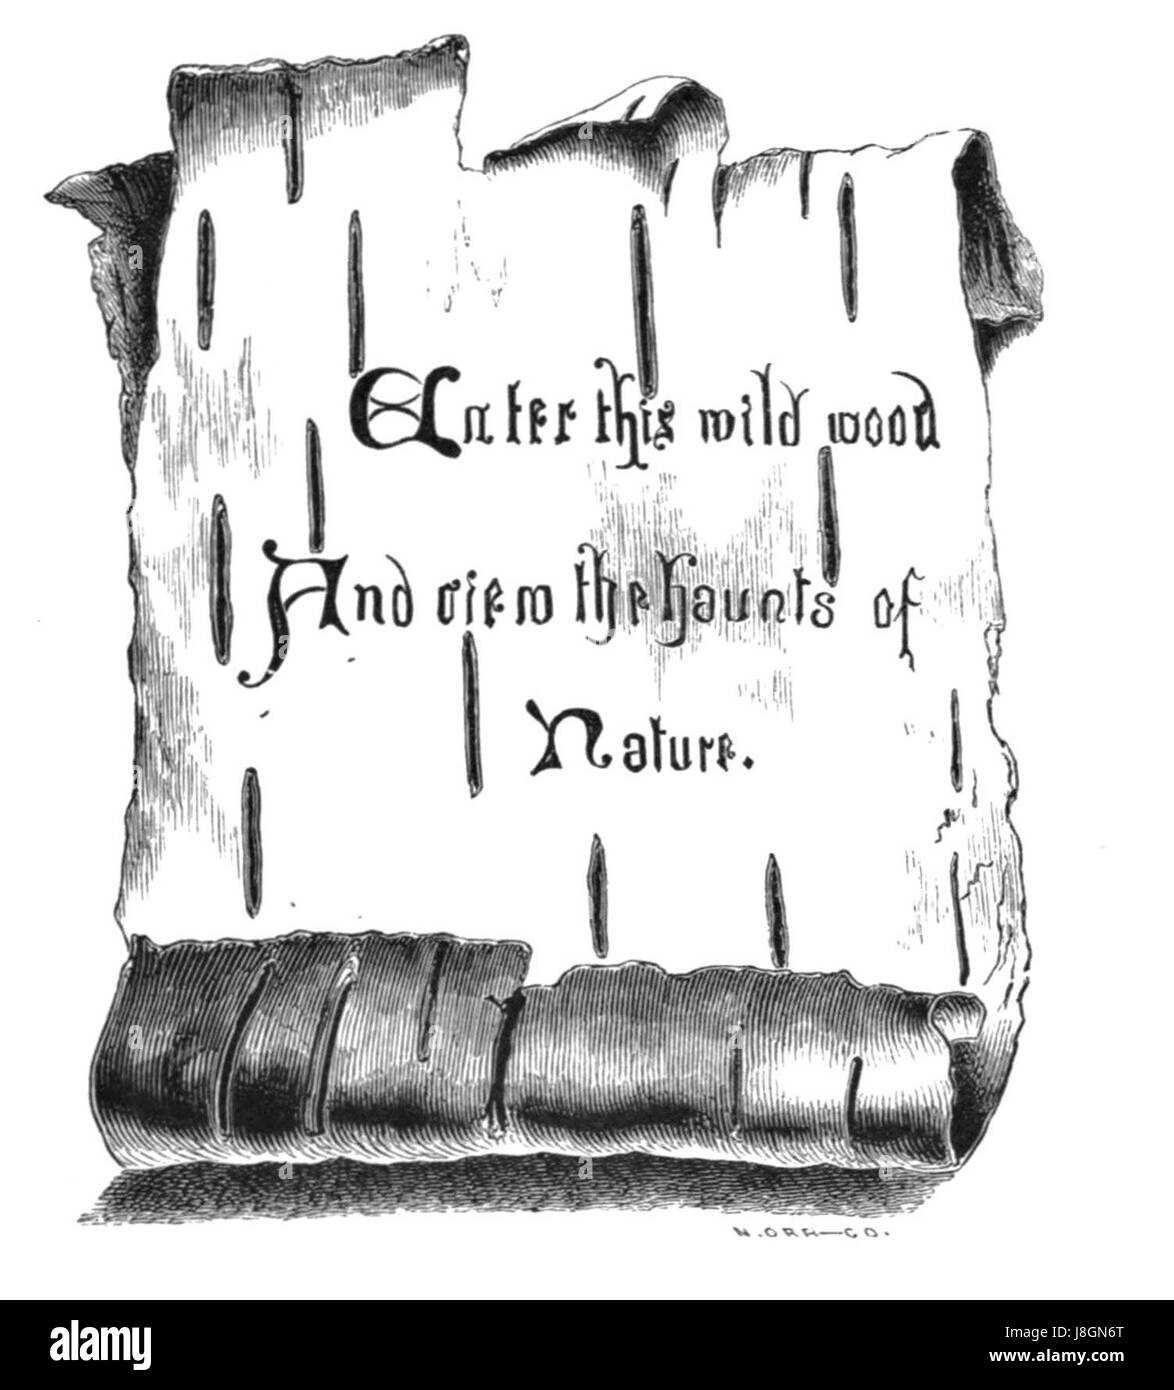 Enter this wild wood
And view the haunts of
Nature.
N. ORR—CO.
alamy
Image ID: J8GN6T
www.alamy.com